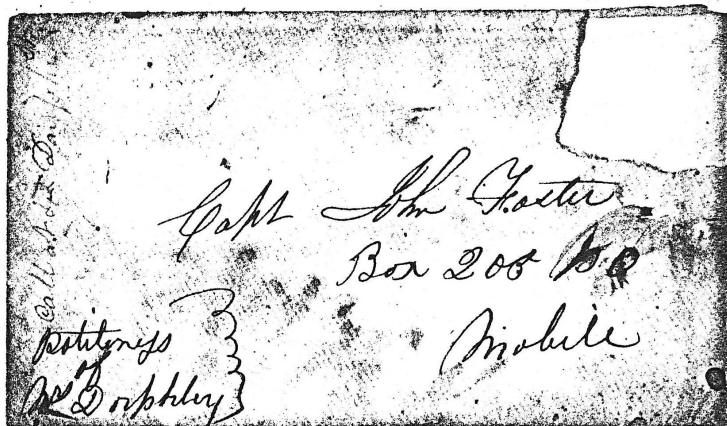 Capt John Foster
Box 205 PO
Mobile
politeness
of
Mrs Dorphley
Call at